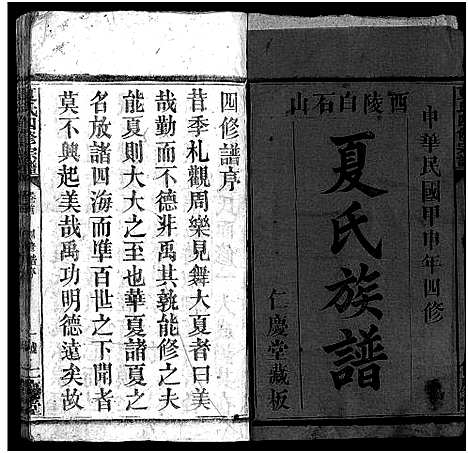 中華民國甲申年四修
西陵白石山
夏氏族譜
仁慶堂藏板
四修譜序
昔季札觀周樂見舞大夏者曰美
哉勤而不德非禹其孰能修之夫
能夏則大大之至也華夏諸夏之
名放諸四海而準百世之下聞者
莫不興起美哉禹功明德遠矣故
夏氏四修宗譜